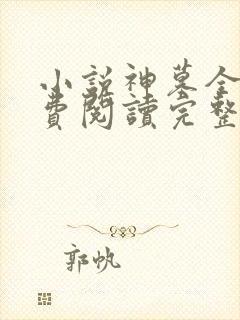 小說神墓全
費閱讀完整
郭帆